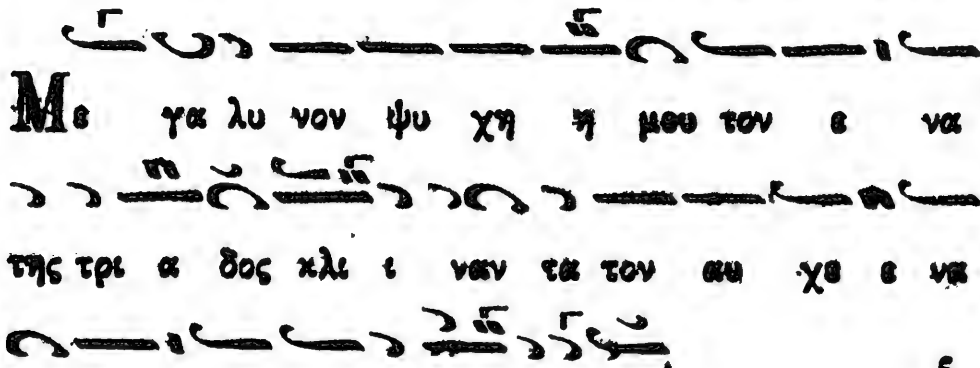 Με γα λυ νον ψυ χη η μου τον ε να
της τρι α δος κλι ι ναν τα τον αυ χε ε να